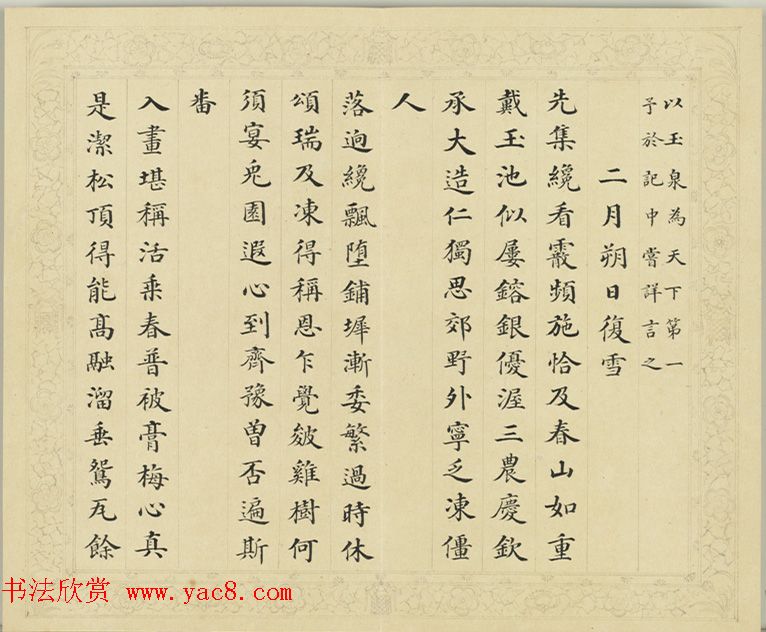 以玉泉為天下第一
予於記中嘗詳言之
二月朔日復雪
先集纔看霰頻施恰及春山如重
戴玉池似屢鎔銀優渥三農慶欽
承大造仁獨思郊野外寧乏凍僵
人
落逈纔飄墮鋪墀漸委繁過時休
頌瑞及凍得稱恩乍覺皴雞樹何
須宴兎園遐心到齊豫曽否遍斯
番
入畫堪稱活乗春普被膏梅心真
是潔松頂得能髙融溜垂鴛瓦餘
书法欣赏 www.yac8.com